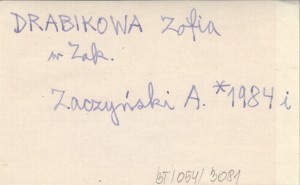 DRABIKOWA Zofia
w Zak.
Zaczyński A. *1984 i
ST/054/3081